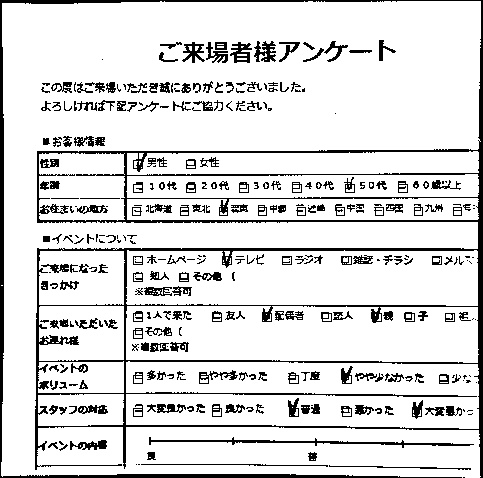 ご来場者様アンケート
この度はご来場いただき誠にありがとうございました。
よろしければ下記アンケートにご協力ください。
■お客様情報
性別 男性 女性
年齢 10代 20代 30代 40代 50代 60歳以上
お住まいの地方 北海道 東北 関東 中部 近畿 中国 四国 九州
■イベントについて
ご来場になった
きっかけ
ホームページ テレビ ラジオ 雑誌・チラシ メルマ
知人 その他 (
※複数回答可
ご来場いただいた
お連れ様
1人で来た 友人 配偶者 恋人 親 子 祖
その他 (
※複数回答可
イベントの
ボリューム
多かった やや多かった 丁度 やや少なかった 少な
スタッフの対応 大変良かった 良かった 普通 悪かった 大変悪か
イベントの内容
良 普